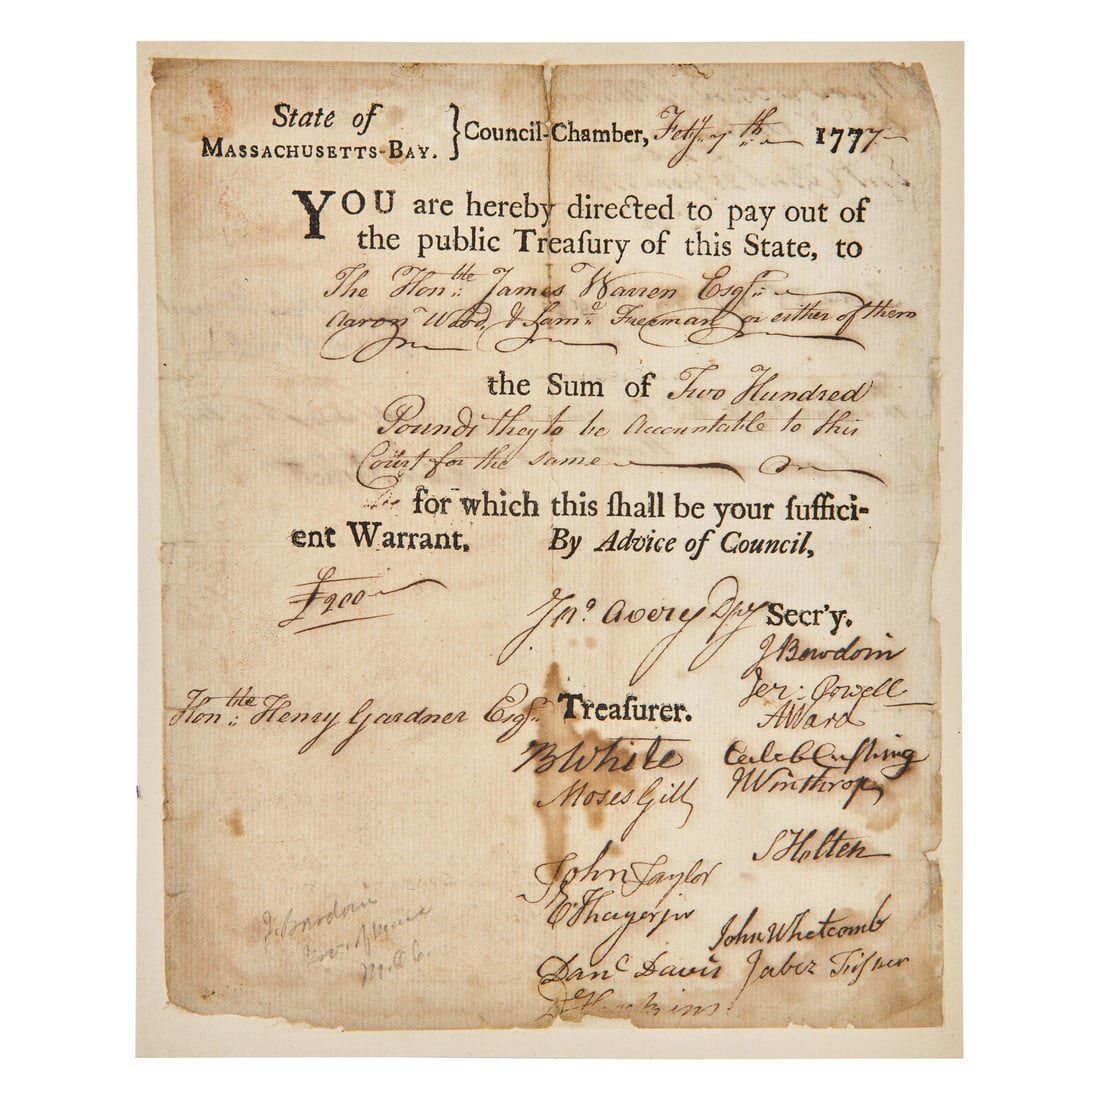 State of
MASSACHUSETTS-BAY. } Council-Chamber, Feby 7th 1777
YOU are hereby directed to pay out of
the public Treaſury of this State, to
The Honble James Warren Esqr
Aaron Wood, & Samd Freeman or either of them
the Sum of Two Hundred
Pounds they to be accountable to this
Court for the same
for which this ſhall be your ſuffici-
ent Warrant. By Advice of Council,
£200
Jno Avery Dpy Secr'y.
J Bowdoin
Jer: Powell
Honble Henry Gardner Esqr Treaſurer.
A Ward
B White Caleb Cushing
Moses Gill J Winthrop
S Holten
John Taylor
E Thayer jr
John Whetcomb
Danl Davis Jabez Fisher
D Hopkins
J. Bowdoin